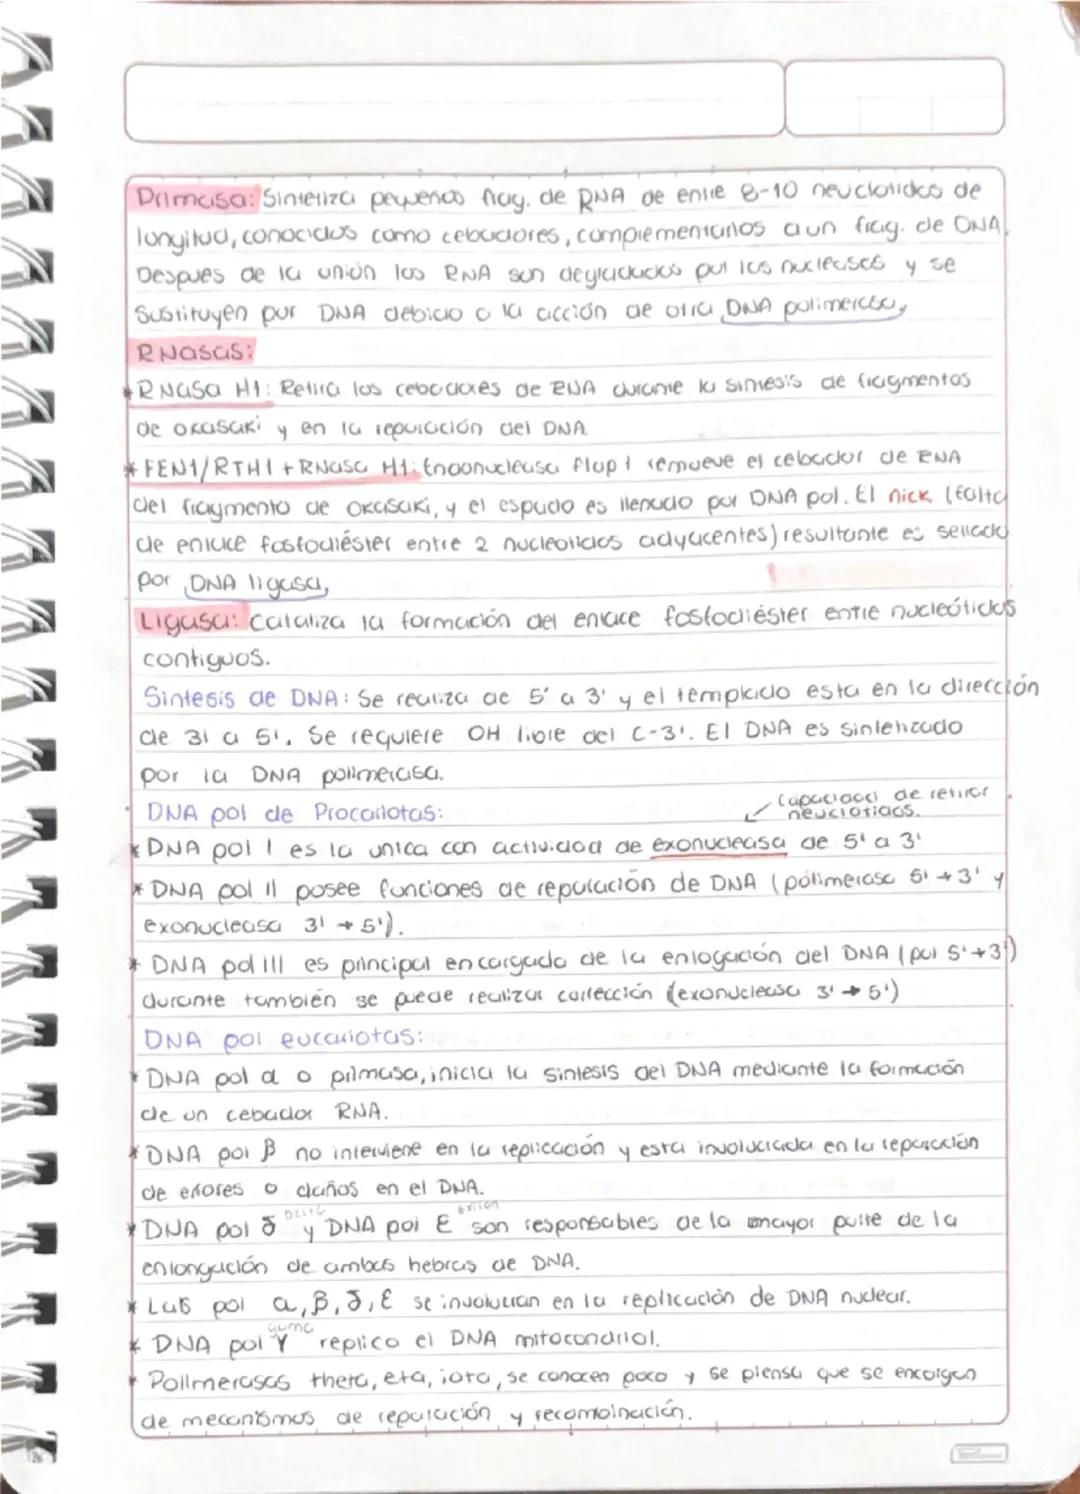 Primasa: Sintetiza pequeños frag. de RNA de entre 8-10 neuclotidos de
longitud, conocidos como cebadores, complementarios a un frag. de DNA.
Despues de la unión los RNA son degradados por las nucleasas y se
sustituyen por DNA debido a la acción de otra DNA polimerasa,
RNasas:
* RNasa H1: Retira los cebadores de RNA durante la sintesis de fragmentos
de okasaki y en la reparación del DNA.
* FEN1/RTH1 + RNasa H1: Endonucleasa flap 1 remueve el cebador de RNA
del fragmento de okasaki, y el espacio es llenado por DNA pol. El nick (falta
de enlace fosfodiéster entre 2 nucleotidos adyacentes) resultante es sellado
por DNA ligasa,
Ligasa: Cataliza la formación del enlace fosfodiéster entre nucleótidos
contiguos.
Sintesis de DNA: Se realiza de 5' a 3' y el templado esta en la dirección
de 3' a 5'. Se requiere OH libre del C-3'. El DNA es sintetizado
por la DNA polimerasa.
DNA pol de Procariotas:
capacidad de retirar
neuclotidos.
* DNA pol I es la unica con actividad de exonucleasa de 5' a 3'
* DNA pol II posee funciones de reparación de DNA (polimerasa 5' → 3' y
exonucleasa 3' → 5').
* DNA pol III es principal encargado de la enlogación del DNA (pol 5' → 3')
durante también se puede realizar corrección (exonucleasa 3' → 5')
DNA pol eucariotas:
* DNA pol α o primasa, inicia la sintesis del DNA mediante la formación
de un cebador RNA.
* DNA pol β no interviene en la replicación y esta involucrada en la reparación
de errores o daños en el DNA.
* DNA pol δ y DNA pol ε son responsables de la mayor parte de la
enlongación de ambas hebras de DNA.
* Las pol α, β, δ, ε se involucran en la replicación de DNA nuclear.
gama
* DNA pol γ replica el DNA mitocondrial.
* Polimerasas theta, eta, iota, se conocen poco y se piensa que se encargan
de mecanismos de reparación y recombinación.